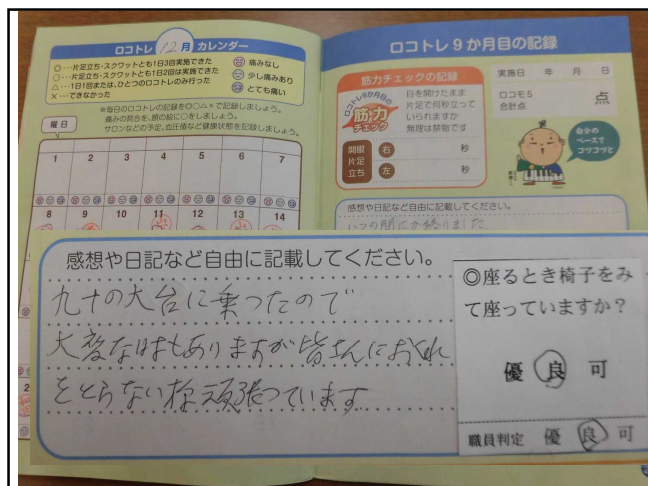 ロコトレ 12 月 カレンダー
◎…片足立ち・スクワットとも1日3回実施できた
○…片足立ち・スクワットとも1日2回は実施できた
△…1日1回または、ひとつのロコトレのみ行った
×…できなかった
痛みなし
少し痛みあり
とても痛い
※毎日のロコトレの記録を◎○△×で記録しましょう。
痛みの具合を、顔の絵に○をしましょう。
サロンなどの予定、血圧値など健康状態を記録しましょう。
曜日
1 2 3 4 5 6 7
8 9 10 11 12 13 14
ロコトレ9か月目の記録
筋力チェックの記録
ロコトレ9か月目の
筋力
チェック
目を開けたまま
片足で何秒立って
いられますか
無理は禁物です
開眼
片足
立ち
右 秒
左 秒
実施日 年 月 日
ロコモ5
合計点
点
自分の
ペースで
コツコツと
感想や日記など自由に記載してください。
いつの間にか終りました
感想や日記など自由に記載してください。
九十の大台に乗ったので
大変なはもありますが皆さんにおくれ
をとらない様頑張っています
◎座るとき椅子をみ
て座っていますか?
優 良 可
職員判定 優 良 可